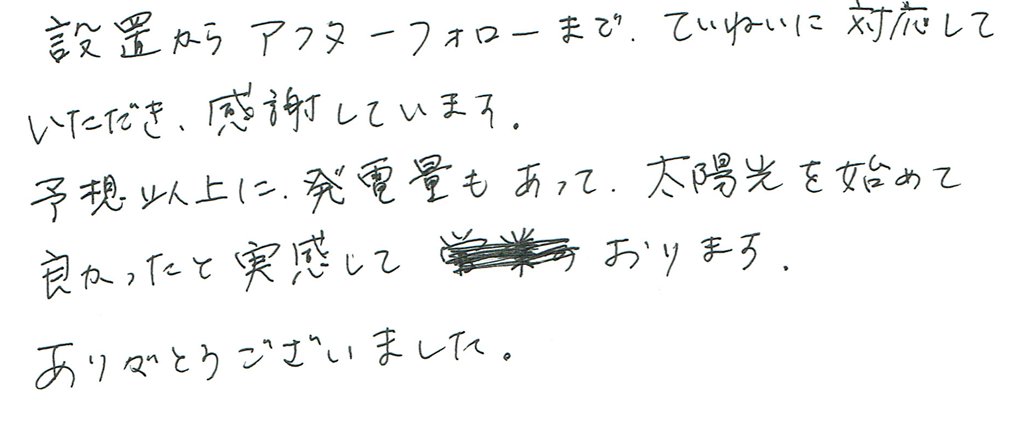 設置からアフターフォローまで、ていねいに対応して
いただき、感謝しています。
予想以上に、発電量もあって、太陽光を始めて
良かったと実感して おります。
ありがとうございました。